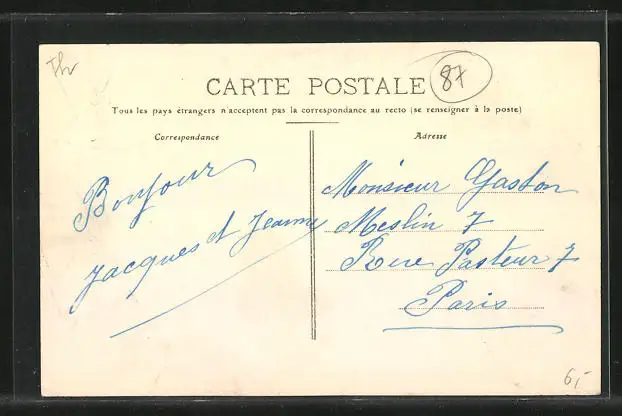 Thr
CARTE POSTALE
87
Tous les pays étrangers n'acceptent pas la correspondance au recto (se renseigner à la poste)
Correspondance
Adresse
Bonjour
Jacques et Jeanne
Monsieur Gaston
Meslin 7
Rue Pasteur 7
Paris
6,-